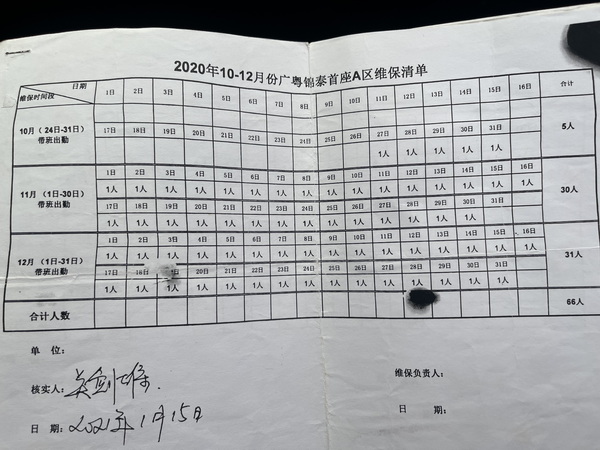 2020年10-12月份广粤锦泰首座A区维保清单
日期
维保时间段
1日 2日 3日 4日 5日 6日 7日 8日 9日 10日 11日 12日 13日 14日 15日 16日 合计
10月（24日-31日）带班出勤
17日 18日 19日 20日 21日 22日 23日 24日 25日 26日 27日 28日 29日 30日 31日
1人 1人 1人 1人 1人
5人
11月（1日-30日）带班出勤
1日 2日 3日 4日 5日 6日 7日 8日 9日 10日 11日 12日 13日 14日 15日 16日
1人 1人 1人 1人 1人 1人 1人 1人 1人 1人 1人 1人 1人 1人 1人 1人
17日 18日 19日 20日 21日 22日 23日 24日 25日 26日 27日 28日 29日 30日 31日
1人 1人 1人 1人 1人 1人 1人 1人 1人 1人 1人 1人 1人 1人
30人
12月（1日-31日）带班出勤
1日 2日 3日 4日 5日 6日 7日 8日 9日 10日 11日 12日 13日 14日 15日 16日
1人 1人 1人 1人 1人 1人 1人 1人 1人 1人 1人 1人 1人 1人 1人 1人
17日 18日 20日 21日 22日 23日 24日 25日 26日 27日 28日 29日 30日 31日
1人 1人 1人 1人 1人 1人 1人 1人 1人 1人 1人 1人 1人 1人 1人
31人
合计人数 66人
单 位：
核实人：
日 期：2021年1月15日
维保负责人：
日 期：